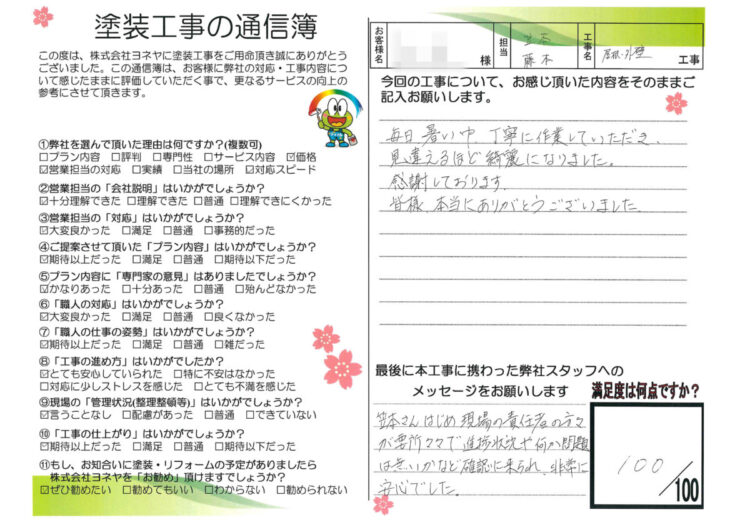 塗装工事の通信簿
この度は、株式会社ヨネヤに塗装工事をご用命頂き誠にありがとう
ございました。この通信簿は、お客様に弊社の対応・工事内容につ
いて感じたままに評価していただく事で、更なるサービスの向上の
参考にさせて頂きます。
①弊社を選んで頂いた理由は何ですか?(複数可)
□プラン内容 □評判 □専門性 □サービス内容 ☑価格
☑営業担当の対応 □実績 □当社の場所 ☑対応スピード
②営業担当の「会社説明」はいかがでしょうか?
☑十分理解できた □理解できた □普通 □理解できにくかった
③営業担当の「対応」はいかがでしょうか?
☑大変良かった □満足 □普通 □事務的だった
④ご提案させて頂いた「プラン内容」はいかがでしょうか?
☑期待以上だった □満足 □普通 □期待以下だった
⑤プラン内容に「専門家の意見」はありましたでしょうか?
☑かなりあった □十分あった □普通 □殆んどなかった
⑥「職人の対応」はいかがでしょうか?
☑大変良かった □満足 □普通 □良くなかった
⑦「職人の仕事の姿勢」はいかがでしょうか?
☑期待以上だった □満足 □普通 □雑だった
⑧「工事の進め方」はいかがでしたか?
☑とても安心していられた □特に不安はなかった
□対応に少しストレスを感じた □とても不満を感じた
⑨現場の「管理状況(整理整頓等)」はいかがでしょうか?
☑言うことなし □配慮があった □普通 □できていない
⑩「工事の仕上がり」はいかがでしょうか?
☑期待以上だった □満足 □普通 □期待以下だった
⑪もし、お知合いに塗装・リフォームの予定がありましたら
株式会社ヨネヤを「お勧め」頂けますでしょうか?
☑ぜひ勧めたい □勧めてもいい □わからない □勧められない
お客様名 様 担当 笠本 藤本 工事名 屋根・外壁 工事
今回の工事について、お感じ頂いた内容をそのままご
記入お願いします。
毎日暑い中、丁寧に作業していただき、
見違えるほど綺麗になりました。
感謝しております。
皆様、本当にありがとうございました。
最後に本工事に携わった弊社スタッフへの
メッセージをお願いします
笠本さんはじめ現場の責任者の方々
が要所々々で進捗状況や何か問題
は無いかなど確認に来られ、非常に
安心でした。
満足度は何点ですか?
100
/100